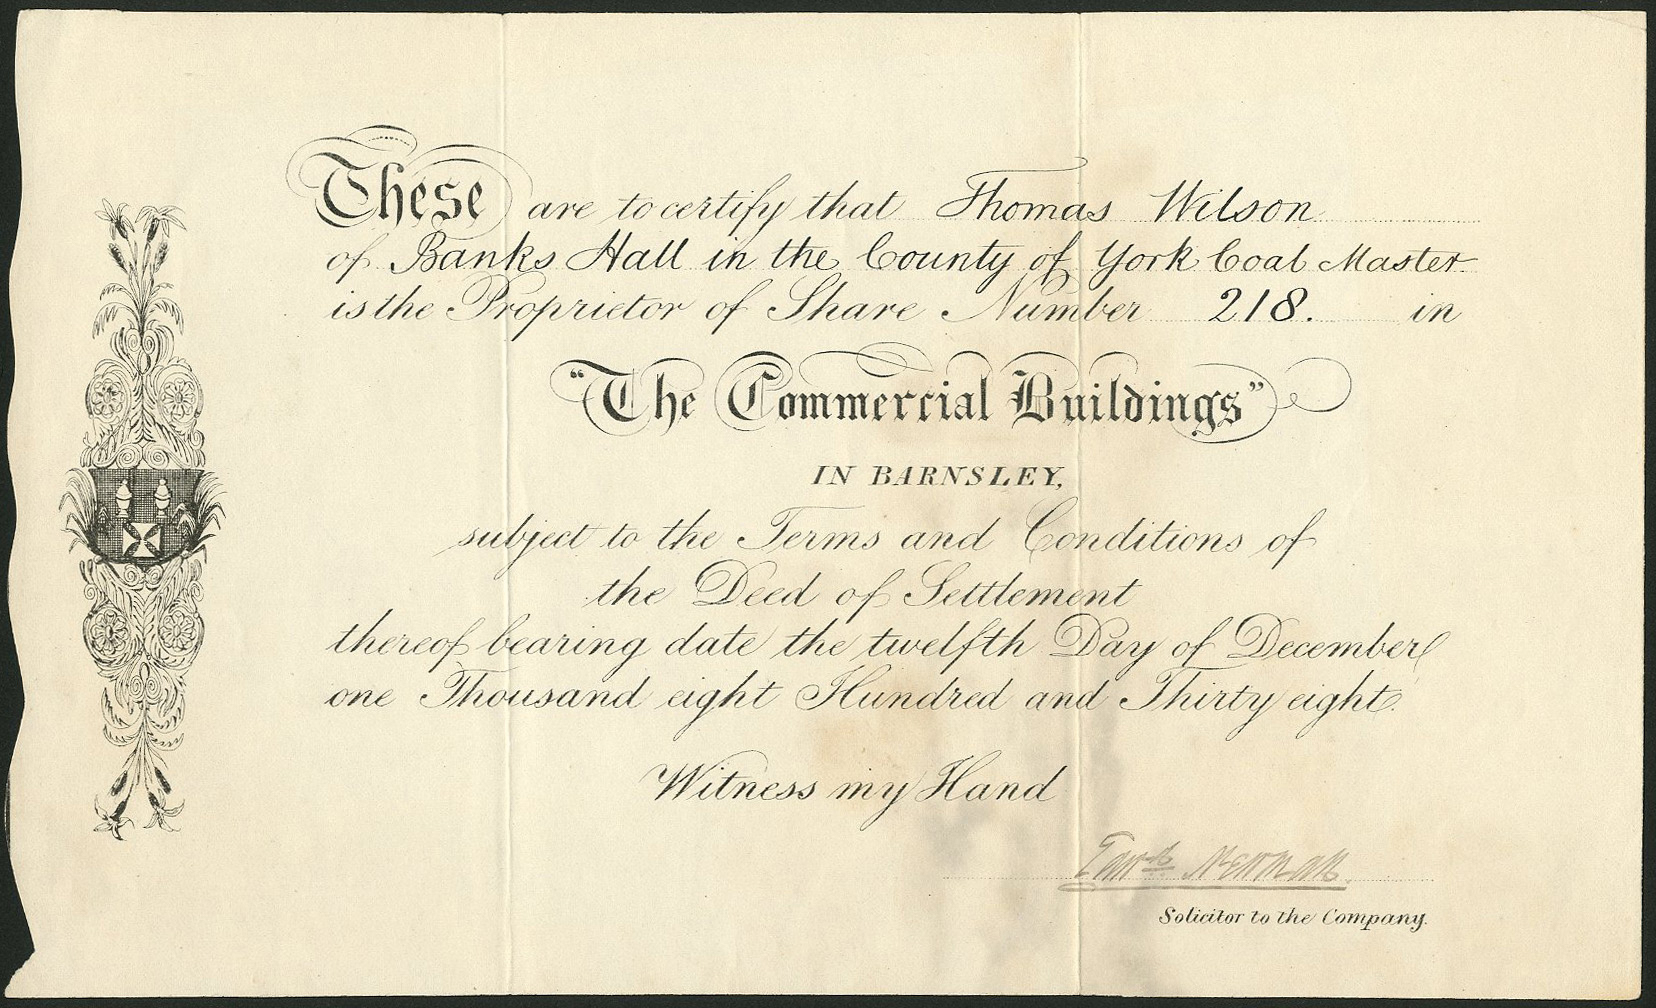 These are to certify that Thomas Wilson
of Banks Hall in the County of York Coal Master
is the Proprietor of Share Number 218. in
"The Commercial Buildings"
IN BARNSLEY,
subject to the Terms and Conditions of
the Deed of Settlement
thereof bearing date the twelfth Day of December
one Thousand eight Hundred and Thirty eight.
Witness my Hand
Edwd. Newman
Solicitor to the Company.